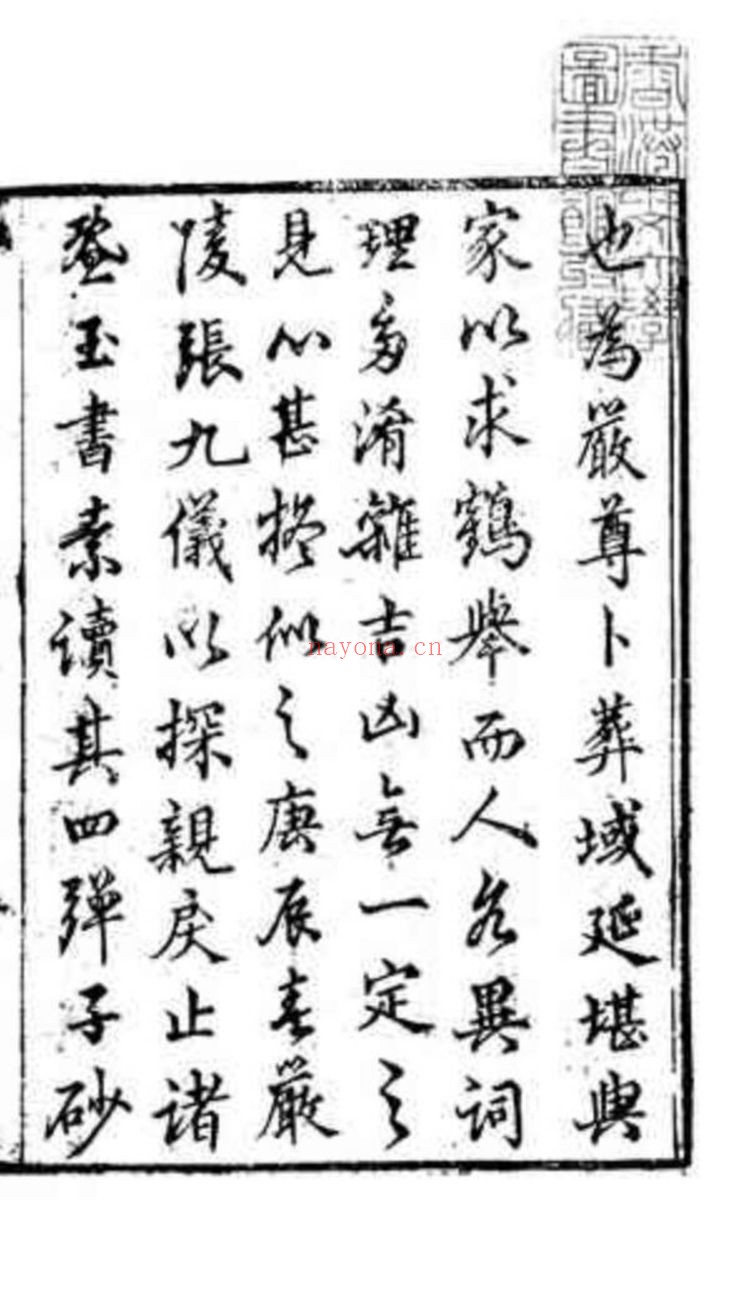 也為嚴尊卜葬域延堪輿
家以求鶴舉而人各異詞
理多淆雜吉凶無一定之
見心甚擬似之庚辰春嚴
陵張九儀以探親戾止諸
暨玉書素讀其四彈子砂
nayona.cn